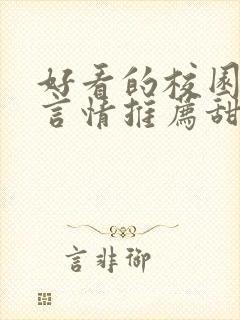 好看的校园
言情推荐甜
言非御